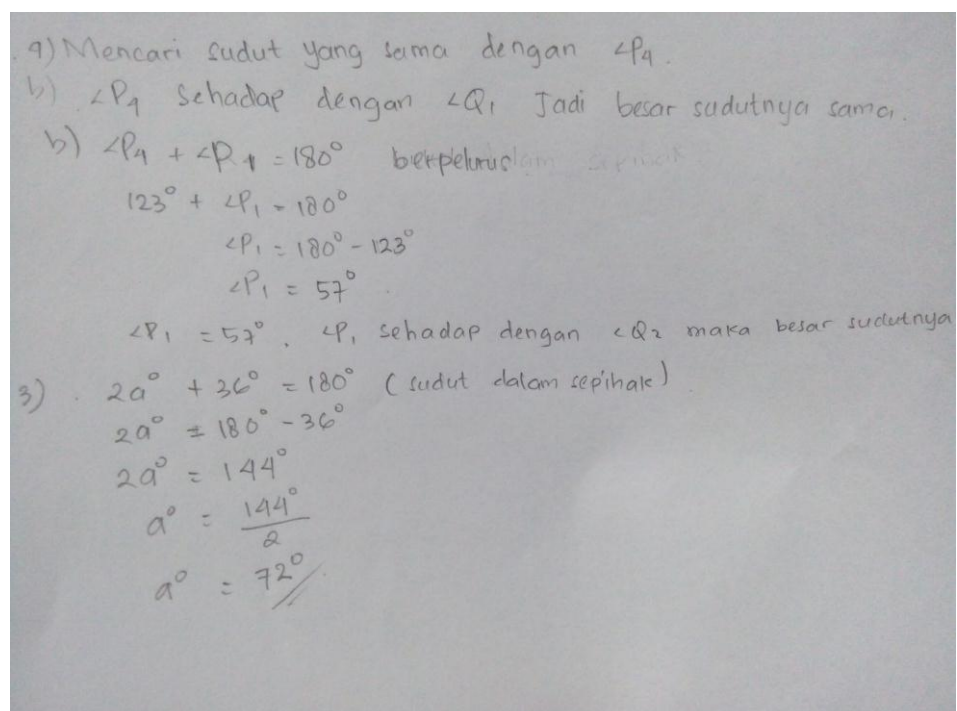 a) Mencari sudut yang sama dengan ∠P4.
b) ∠P4 Sehadap dengan ∠Q1 Jadi besar sudutnya sama.
b) ∠P4 + ∠P1 = 180° berpelurus
123° + ∠P1 = 180°
∠P1 = 180° - 123°
∠P1 = 57°.
∠P1 = 57°. ∠P1 sehadap dengan ∠Q2 maka besar sudutnya
3). 2a° + 36° = 180° (sudut dalam sepihak)
2a° = 180° - 36°
2a° = 144°
a° = 144°/2
a° = 72°//